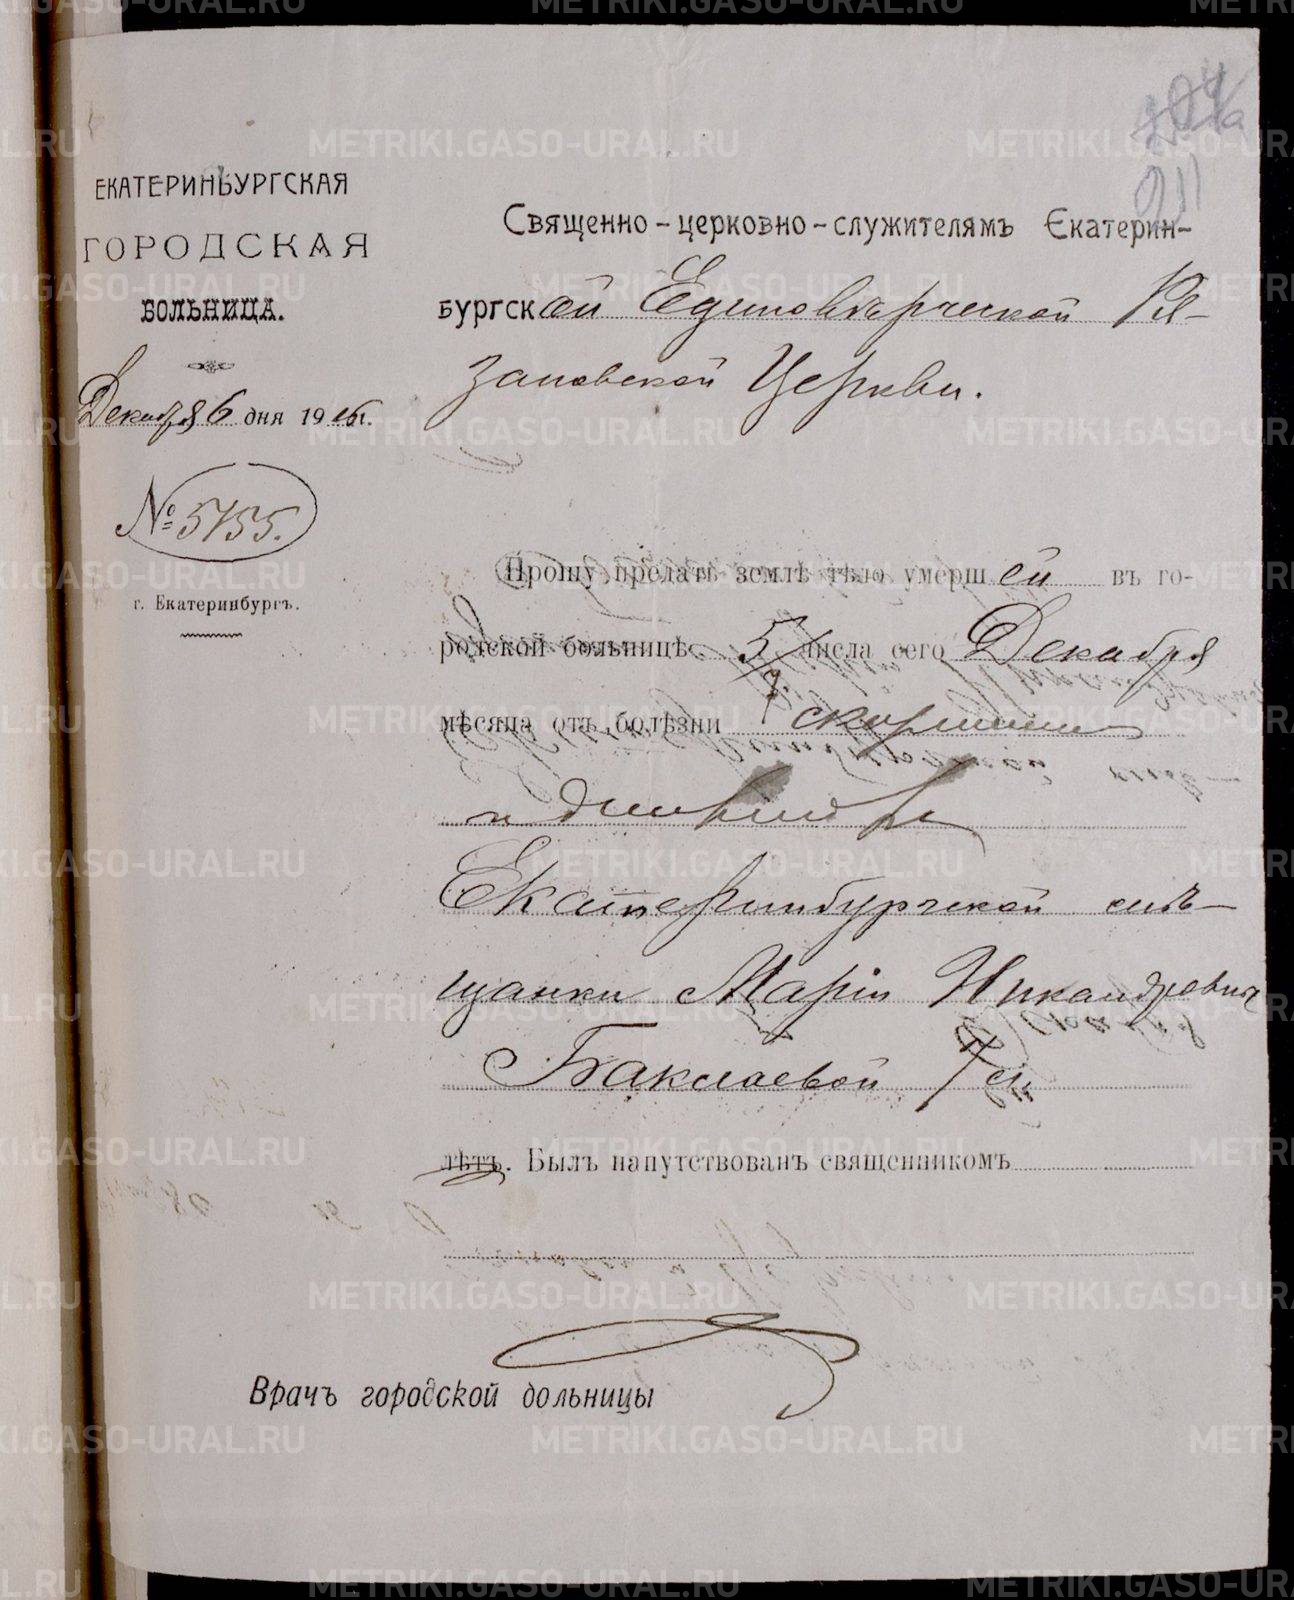 204а
911
ЕКАТЕРИНБУРГСКАЯ
ГОРОДСКАЯ
БОЛЬНИЦА.
Декабря 6 дня 19 г.
№ 5755.
г. Екатеринбургъ.
Священно-церковно-служителямъ Екатерин-
бургской Единоверческой Ря-
зановской Церкви.
Прошу предать землѣ тѣло умершей въ го-
родской больницѣ 5/7 числа сего Декабря
мѣсяца отъ болѣзни скорлатины
и дифтерита
Екатеринбургской мѣ-
щанки Марiи Никандровны
Баклаевой
лѣтъ. Былъ напутствованъ священникомъ
Врачъ городской больницы
METRIKI.GASO-URAL.RU